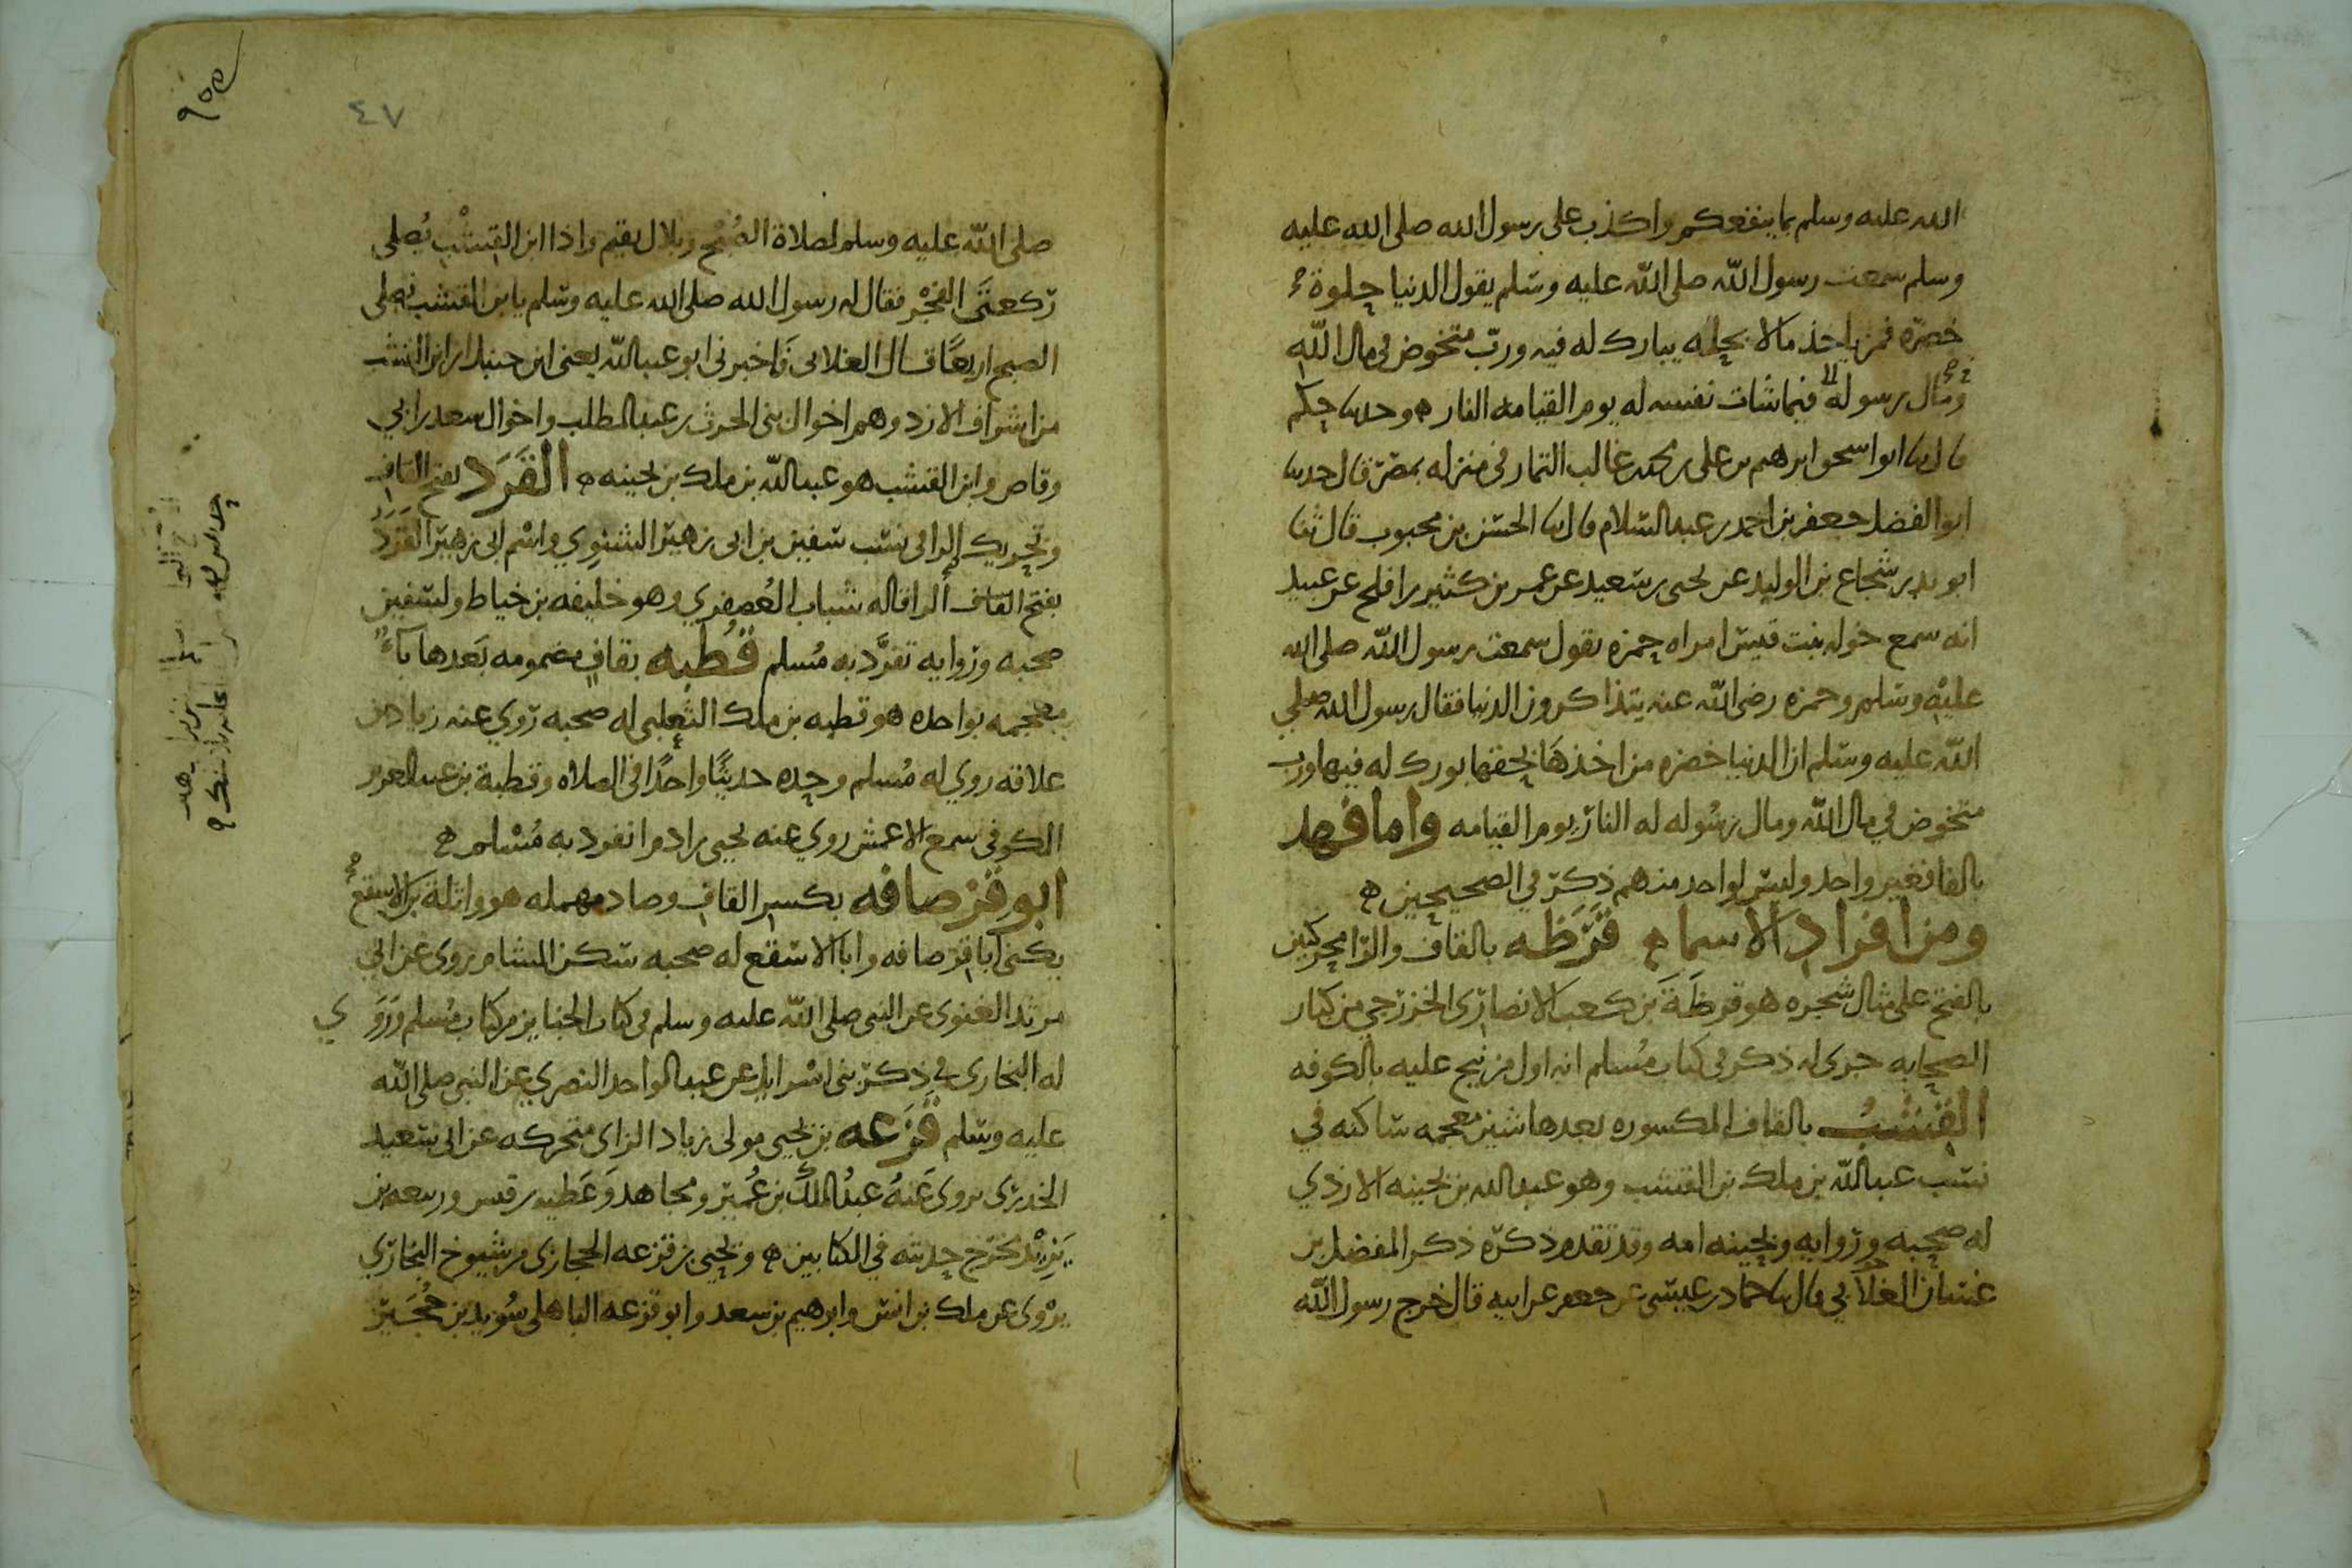 الله عليه وسلم بما ينفعكم واكذب على رسول الله صلى الله عليه
وسلم سمعت رسول الله صلى الله عليه وسلم يقول الدنيا حلوة
خضرة فمن ياخذ مالا بحله يبارك له فيه ورب متخوض في مال الله
ومال رسوله فيما شات نفسه له يوم القيامه النار ه وحدثنا حكم
قال نا ابو اسحق ابرهيم بن على بن محمد بن غالب التمار في منزله بمصر قال حدثنا
ابو الفضل جعفر بن احمد بن عبد السلام قال نا الحسن بن محبوب قال ثنا
ابو بدر شجاع بن الوليد عن يحيى بن سعيد عن عمر بن كثير بن افلح عن عبيد
انه سمع خوله بنت قيس امراه حمزه تقول سمعت رسول الله صلى الله
عليه وسلم وحمزه رضى الله عنه يتذاكرون الدنيا فقال رسول الله صلى
الله عليه وسلم ان الدنيا خضره من اخذها بحقها بورك له فيها ورب
متخوض في مال الله ومال رسوله له النار يوم القيامه واما فهد
بالفا فغير واحد وليس لواحد منهم ذكر في الصحيحين ه
ومن افراد الاسماء قرظه بالقاف والرا محركين
بالفتح على مثال شجره هو قرظة بن كعب الانصارى الخزرجي من كبار
الصحابه جرى له ذكر في كتاب مسلم انه اول من نيح عليه بالكوفه
القشب بالقاف المكسوره بعدها شين معجمه ساكنه في
نسب عبد الله بن ملك بن القشب وهو عبد الله بن بحينه الازدي
له صحبه وروايه وبحينه امه وقد تقدم ذكره ذكر المفضل بن
غسان الغلابي قال نا حماد بن عيسى عن جعفر عن ابيه قال خرج رسول الله
٤٧
صلى الله عليه وسلم لصلاة الصبح وبلال يقيم واذا ابن القشب يصلى
ركعتى الفجر فقال له رسول الله صلى الله عليه وسلم يا بن القشب تصلى
الصبح اربعا قال الغلابى واخبرنى ابو عبد الله يعنى ابن حنبل ان ابن القشب
من اشراف الازد وهم اخوال بنى الحرث بن عبد المطلب واخوال سعد بن ابي
وقاص وابن القشب هو عبد الله بن ملك بن بحينه ه القرد بفتح القاف
وتحريك الرا في نسب سفين بن ابى زهير الشنوي واسم ابى زهير القرد
بفتح القاف والرا قاله شباب العصفري وهو خليفه بن خياط ولسفين
صحبه وروايه تفرد به مسلم قطبه بقاف مضمومه بعدها باء
معجمه بواحده هو قطبه بن ملك الثعلبى له صحبه روي عنه زياد بن
علاقه روي له مسلم وحده حديثا واحدا في الصلاه وقطبة بن عبد العزيز
الكوفى سمع الاعمش روي عنه يحيى بن ادم انفرد به مسلم ه
ابو قرصافه بكسر القاف وصاد مهمله هو واثلة بن الاسقع
يكنى ابا قرصافه وابا الاسقع له صحبه سكن الشام يروى عن ابي
مرثد الغنوى عن النبى صلى الله عليه وسلم في كتاب الجنايز من كتاب مسلم وروي
له البخارى في ذكر بنى اسرايل عن عبد الواحد النصري عن النبى صلى الله
عليه وسلم قزعه بن يحيى مولى زياد الزاى متحركه عن ابى سعيد
الخدرى يروى عنه عبد الملك بن عمير ومجاهد وعطيه بن قيس وربيعه بن
يزيد مخرج حديثه في الكتابين ه ويحيى بن قزعه الحجازى من شيوخ البخاري
يروى عن ملك بن انس وابرهيم بن سعد وابو قزعه الباهلى سويد بن حجير